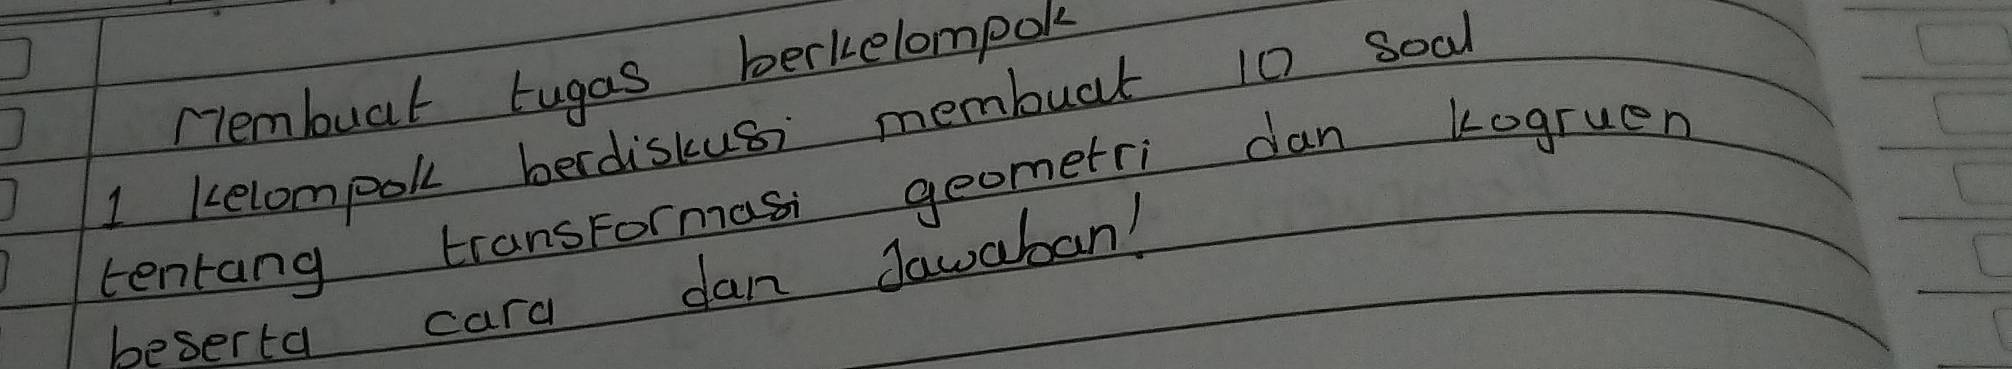 Membuat tugas berkelompok
1 kelompok berdiskusi membuat 10 soal
tentang transformasi geometri dan kogruen
beserta cara dan Jawaban!